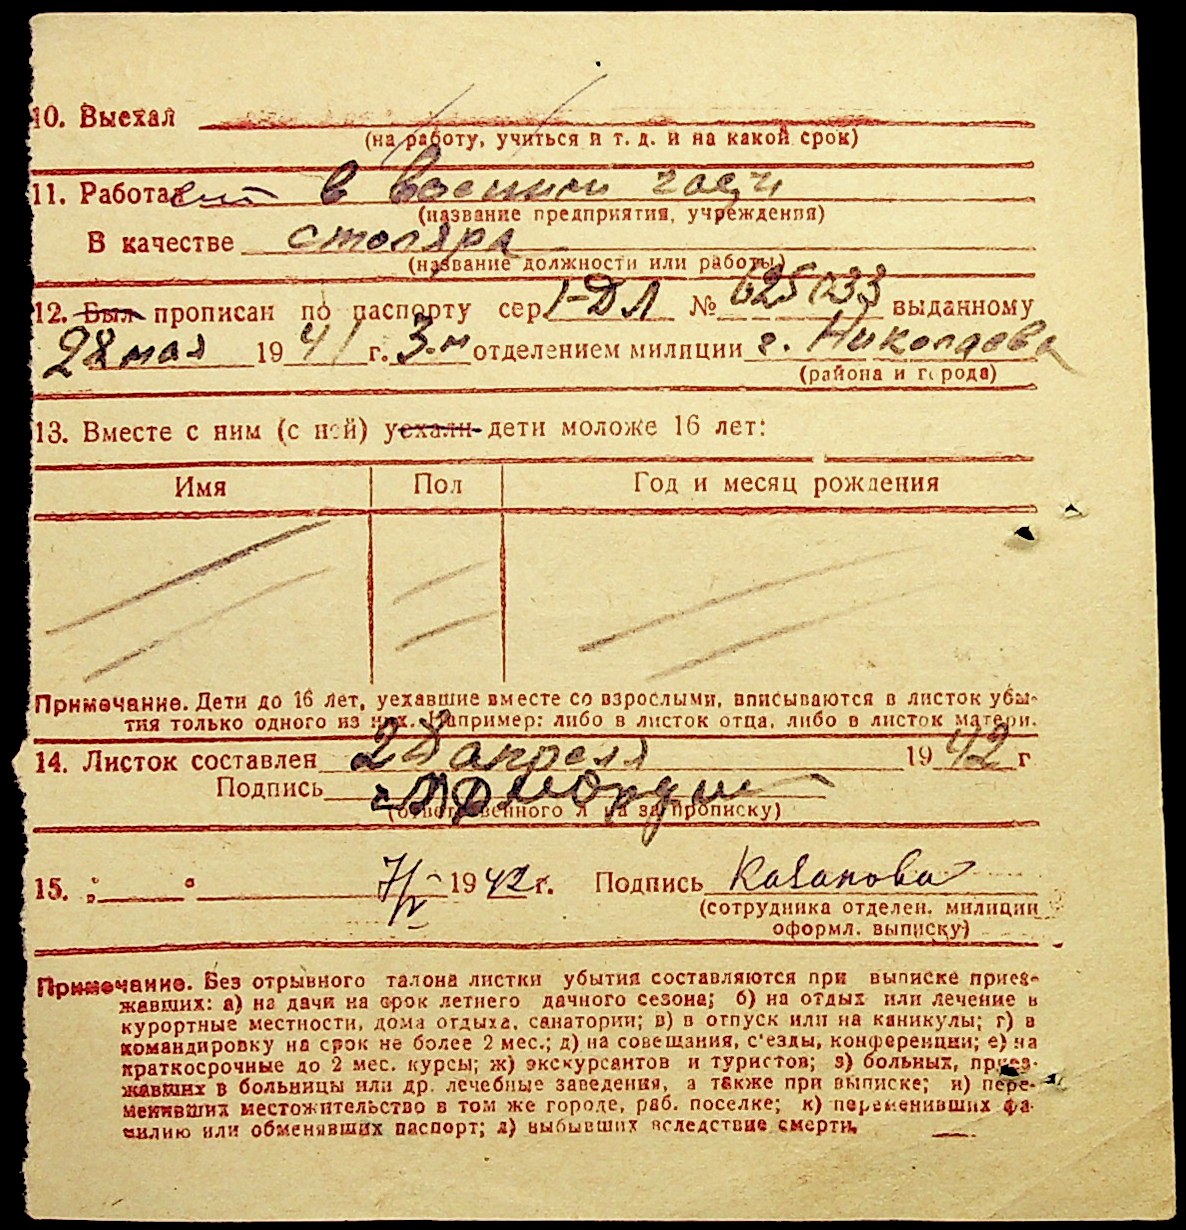 10. Выехал
(на работу, учиться и т. д. и на какой срок)
11. Работает в военной части
(название предприятия, учреждения)
В качестве столяра
(название должности или работы)
12. Был прописан по паспорту сер. I-ДЛ № 625033 выданному
28 мая 1941 г. 3-м отделением милиции г. Николаева
(района и города)
13. Вместе с ним (с ней) уехали дети моложе 16 лет:
Имя Пол Год и месяц рождения
Примечание. Дети до 16 лет, уехавшие вместе со взрослыми, вписываются в листок убы-
тия только одного из них. Например: либо в листок отца, либо в листок матери.
14. Листок составлен 28 апреля 1942 г
Подпись
(ответственного л на за прописку)
15. „ " 7/V 1942 г. Подпись Казакова
(сотрудника отделен. милиции
оформл. выписку)
Примечание. Без отрывного талона листки убытия составляются при выписке приез-
жавших: а) на дачи на срок летнего дачного сезона; б) на отдых или лечение в
курортные местности, дома отдыха, санатории; в) в отпуск или на каникулы; г) в
командировку на срок не более 2 мес.; д) на совещания, с'езды, конференции; е) на
краткосрочные до 2 мес. курсы; ж) экскурсантов и туристов; з) больных, приез-
жавших в больницы или др. лечебные заведения, а также при выписке; и) пере-
менивших местожительство в том же городе, раб. поселке; к) переменивших фа-
милию или обменявших паспорт; л) выбывших вследствие смерти.